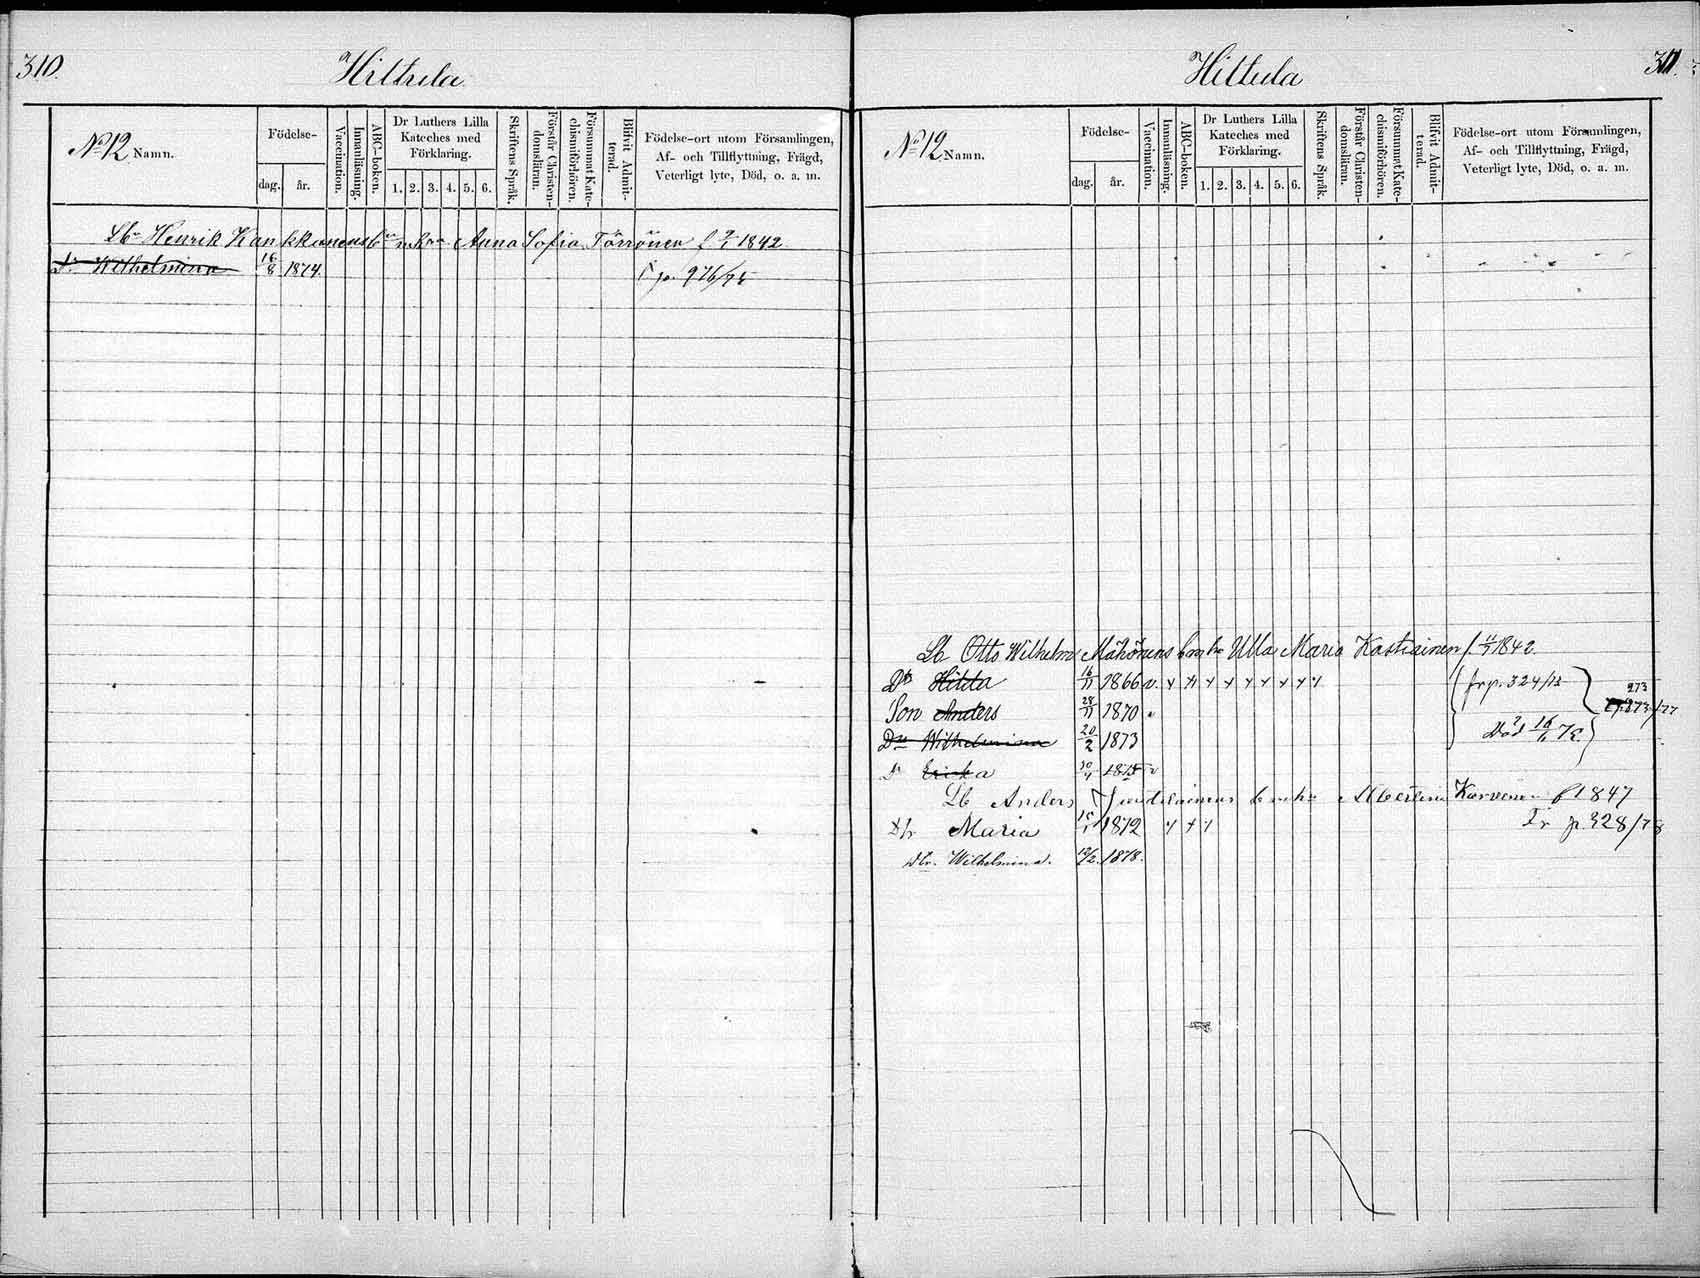 310.
Hittula
No 12 Namn.
Födelse-
dag.
år.
Vaccination.
Innanläsning.
ABC-boken.
Dr Luthers Lilla
Kateches med
Förklaring.
1. 2. 3. 4. 5. 6.
Skriftens Språk.
Förstår Christen-
domsläran.
Försummat Kate-
chismiförhören.
Blifvit Admit-
terad.
Födelse-ort utom Församlingen,
Af- och Tillflyttning, Frägd,
Veterligt lyte, Död, o. a. m.
Henrik Anna Sofia Törrönen f 1842
Dr Wilhelmina 16/8 1874. p. 976/75
Hittula
311.
No 12 Namn.
Födelse-
dag.
år.
Vaccination.
Innanläsning.
ABC-boken.
Dr Luthers Lilla
Kateches med
Förklaring.
1. 2. 3. 4. 5. 6.
Skriftens Språk.
Förstår Christen-
domsläran.
Försummat Kate-
chismiförhören.
Blifvit Admit-
terad.
Födelse-ort utom Församlingen,
Af- och Tillflyttning, Frägd,
Veterligt lyte, Död, o. a. m.
Lb Otto Wilhelm Mähönens Ulla Maria Kastiainen f. 11/7 1842
Dr Hilda 16/11 1866 v. fr p. 324/73
Son Anders 28/11 1870
Dr Wilhelmina 20/2 1873 Död 16/6 75
Dr Ericka 30/4 1875 v
Lb Anders Albertina Karvonen f 1847
Dtr Maria 1872 Fr p. 328/78
Dtr. Wilhelmina. 12/2. 1878.